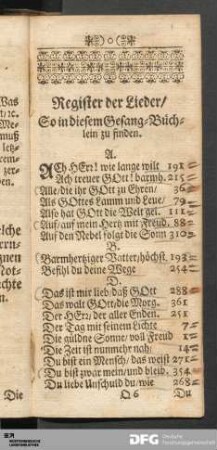 Register der Lieder/
So in diesem Gesang-Büch-
lein zu finden.
A.
ACh HErr! wie lange wilt 191
Ach treuer GOtt! barmh. 215
Alle/die ihr GOtt zu Ehren/ 36
Als GOttes Lamm und Leue/ 79
Also hat GOtt die Welt gel. 111
Auf/auf mein Hertz mit Freud. 88
Auf den Nebel folgt die Sonn 310
B.
Barmhertziger Vatter/höchst. 193
Befihl du deine Wege 254
D.
Das ist mir lieb/daß GOtt 288
Das walt GOtt/die Morg. 361
Der HErr/der aller Enden. 251
Der Tag mit seinem Lichte 7
Die güldne Sonne/ voll Freud 1
Die Zeit ist nunmehr nah/ 14
Du bist ein Mensch/das weist 271
Du bist zwar mein/und bleib. 354
Du liebe Unschuld du/wie 268
Q 6 Du
Die
DFG Deutsche
Forschungsgemeinschaft